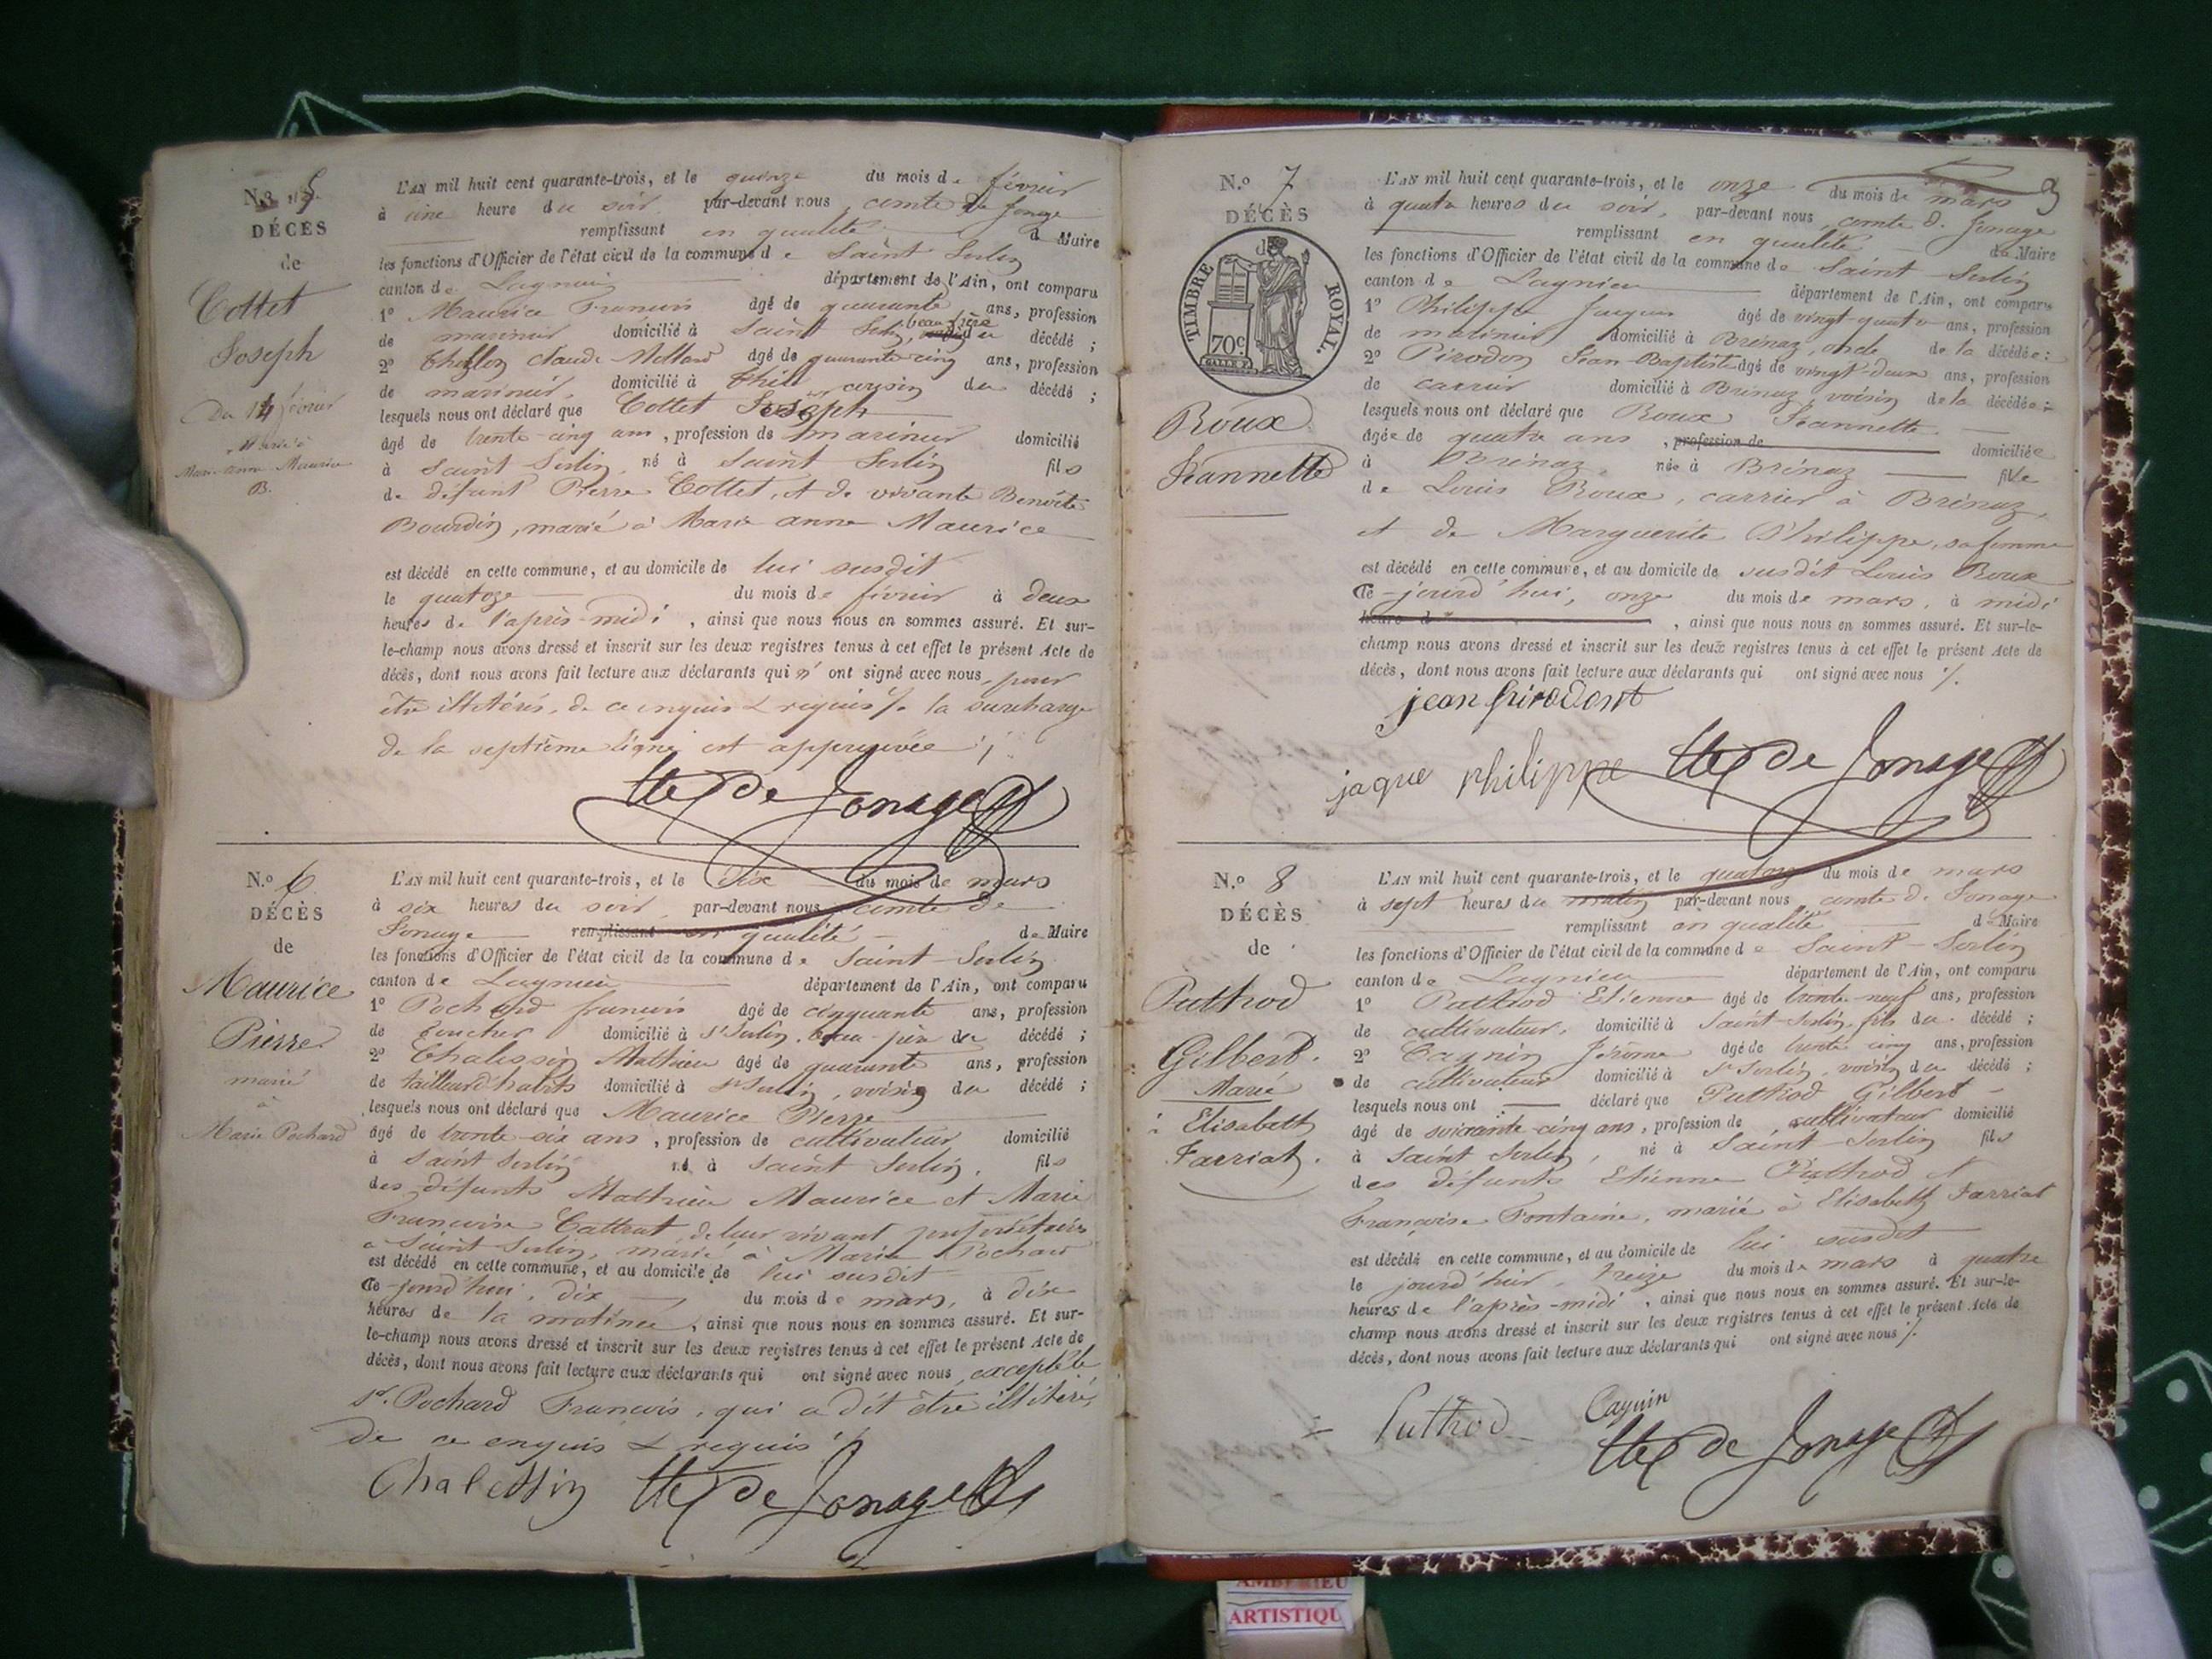 N.o 5
DÉCÈS
de
Cottet
Joseph
Du 14 février
Marié à
Marie anne Maurice
B.
L'AN mil huit cent quarante-trois, et le quinze du mois de février
à une heure du soir, par-devant nous comte de Jonage
remplissant en qualité de Maire
les fonctions d'Officier de l'état civil de la commune de Saint Sorlin
canton de Lagnieu département de l'Ain, ont comparu
1º Maurice François âgé de quarante ans, profession
de marinier domicilié à Saint Sorlin, beau frère du décédé ;
2º Claude âgé de quarante-cinq ans, profession
de marinier, domicilié à cousin du décédé ;
lesquels nous ont déclaré que Cottet Joseph
âgé de trente-cinq ans, profession de marinier domicilié
à Saint Sorlin, né à Saint Sorlin fils
de défunt Pierre Cottet, et de vivante Benoîte
Bourdin, marié à Marie anne Maurice
est décédé en cette commune, et au domicile de lui susdit
le quatorze du mois de février à deux
heures de l'après-midi, ainsi que nous nous en sommes assuré. Et sur-
le-champ nous avons dressé et inscrit sur les deux registres tenus à cet effet le présent Acte de
décès, dont nous avons fait lecture aux déclarants qui n'ont signé avec nous, pour
être illitérés, de ce enquis & requis ./. la surcharge
de la septième ligne est approuvée ./.
Cte de Jonage
N.o 6
DÉCÈS
de
Maurice
Pierre
marié
à
Marie Pochard
L'AN mil huit cent quarante-trois, et le dix du mois de mars
à six heures du soir, par-devant nous comte de
Jonage remplissant en qualité de Maire
les fonctions d'Officier de l'état civil de la commune de Saint-Sorlin
canton de Lagnieu département de l'Ain, ont comparu
1º Pochard françois âgé de cinquante ans, profession
de boucher domicilié à St Sorlin, beau-père du décédé ;
2º Chalessin Mathieu âgé de quarante ans, profession
de tailleur d'habits domicilié à St Sorlin, voisin du décédé ;
lesquels nous ont déclaré que Maurice Pierre
âgé de trente-six ans, profession de cultivateur domicilié
à Saint Sorlin né à Saint Sorlin, fils
des défunts Mathieu Maurice et Marie
Françoise Cattrat, de leur vivant propriétaires
à Saint Sorlin, marié à Marie Pochard
est décédé en cette commune, et au domicile de lui susdit
Ce-jourd'hui, dix du mois de mars, à dix
heures de la matinée, ainsi que nous nous en sommes assuré. Et sur-
le-champ nous avons dressé et inscrit sur les deux registres tenus à cet effet le présent Acte de
décès, dont nous avons fait lecture aux déclarants qui ont signé avec nous, excepté le
sr. Pochard François, qui a dit être illitéré,
de ce enquis & requis ./.
Chalessin Cte de Jonage
N.o 7
DÉCÈS
de
TIMBRE ROYAL.
70c.
Roux
Jeannette
L'AN mil huit cent quarante-trois, et le onze du mois de mars 3
à quatre heures du soir, par-devant nous comte de Jonage
remplissant en qualité de Maire
les fonctions d'Officier de l'état civil de la commune de Saint-Sorlin
canton de Lagnieu département de l'Ain, ont comparu
1º Philippe Jacques âgé de vingt-quatre ans, profession
de marinier domicilié à Brénaz, oncle de la décédée ;
2º Pirodon Jean-Baptiste âgé de vingt-deux ans, profession
de carrier domicilié à Brénaz, voisin de la décédée ;
lesquels nous ont déclaré que Roux Jeannette
âgée de quatre ans, profession de domiciliée
à Brénaz, née à Brénaz fille
de Louis Roux, carrier à Brénaz,
et de Marguerite Philippe, sa femme
est décédé en cette commune, et au domicile de susdit Louis Roux
Ce-jourd'hui, onze du mois de mars, à midi
heure d , ainsi que nous nous en sommes assuré. Et sur-le-
champ nous avons dressé et inscrit sur les deux registres tenus à cet effet le présent Acte de
décès, dont nous avons fait lecture aux déclarants qui ont signé avec nous ./.
jean
jaque philippe Cte de Jonage
N.o 8
DÉCÈS
de
Puthod
Gilbert.
Marié
à Elisabeth
Farriat.
L'AN mil huit cent quarante-trois, et le quatorze du mois de mars
à sept heures du matin par-devant nous comte de Jonage
remplissant en qualité de Maire
les fonctions d'Officier de l'état civil de la commune de Saint-Sorlin
canton de Lagnieu département de l'Ain, ont comparu
1º Puthod Etienne âgé de trente-neuf ans, profession
de cultivateur, domicilié à Saint-Sorlin, fils du décédé ;
2º Cagnin Jérôme âgé de trente cinq ans, profession
de cultivateur domicilié à St Sorlin, voisin du décédé ;
lesquels nous ont déclaré que Puthod Gilbert
âgé de soixante-cinq ans, profession de cultivateur domicilié
à Saint Sorlin, né à Saint-Sorlin fils
des défunts Etienne Puthod et
Françoise Fontaine, marié à Elisabeth Farriat
est décédé en cette commune, et au domicile de lui susdit
le jourd'hier, treize du mois de mars à quatre
heures de l'après-midi, ainsi que nous nous en sommes assuré. Et sur-le-
champ nous avons dressé et inscrit sur les deux registres tenus à cet effet le présent Acte de
décès, dont nous avons fait lecture aux déclarants qui ont signé avec nous ./.
Puthod Cagnin
Cte de Jonage
AMBERIEU
ARTISTIQU